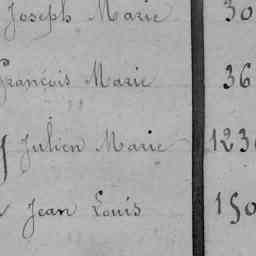 Joseph Marie 30
François Marie 36
Julien Marie 123
Jean Louis 150